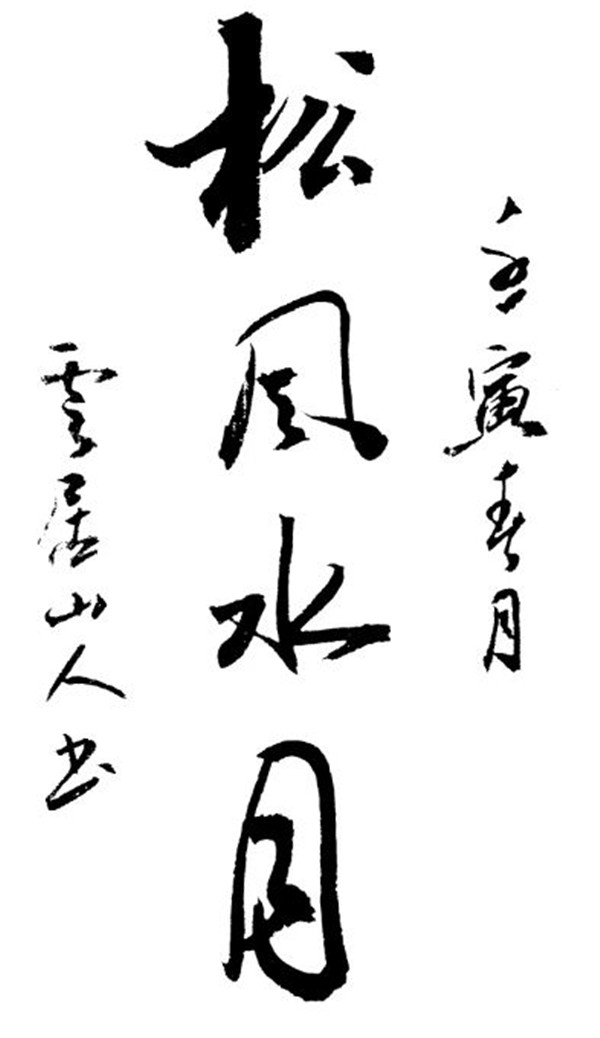 壬寅春月
松风水月
雲居山人书